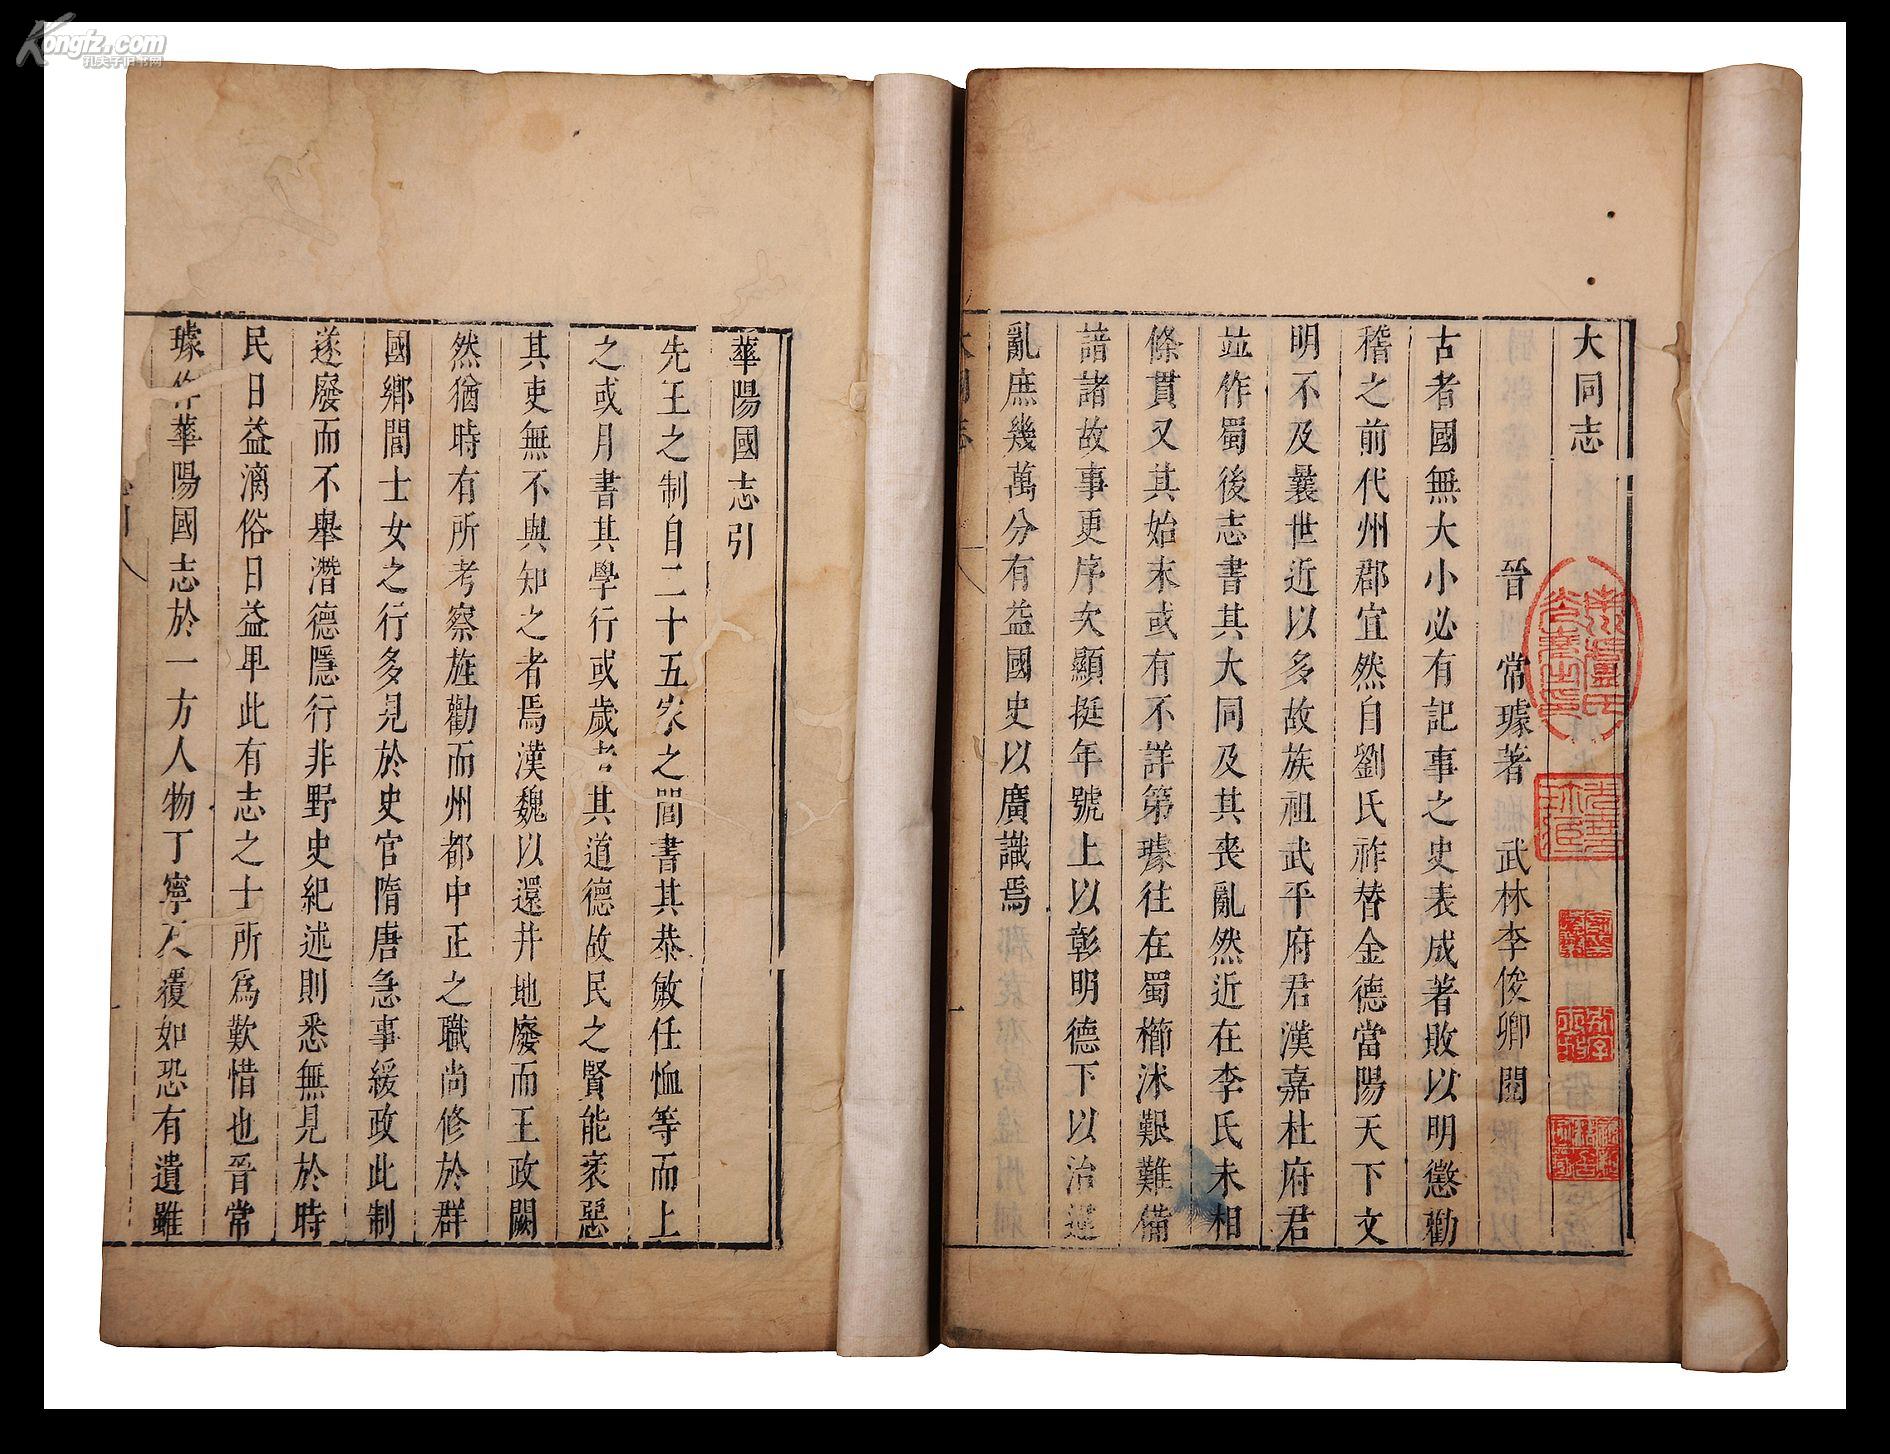 Kongfz.com
孔夫子旧书网
大同志
晉 常璩著 武林李俊卿閱
古者國無大小必有記事之史表成著敗以明懲勸
稽之前代州郡宜然自劉氏祚替金德當陽天下文
明不及曩世近以多故族祖武平府君漢嘉杜府君
竝作蜀後志書其大同及其喪亂然近在李氏未相
條貫又其始末或有不詳第璩往在蜀櫛沐艱難備
諳諸故事更序次顯挺年號上以彰明德下以治違
亂庶幾萬分有益國史以廣識焉
華陽國志引
先王之制自二十五家之閭書其恭敏任恤等而上
之或月書其學行或歲考其道德故民之賢能衺惡
其吏無不與知之者焉漢魏以還井地廢而王政闕
然猶時有所考察旌勸而州都中正之職尚修於群
國鄉閭士女之行多見於史官隋唐急事緩政此制
遂廢而不舉潛德隱行非野史紀述則悉無見於時
民日益漓俗日益卑此有志之士所爲歎惜也晉常
璩作華陽國志於一方人物丁寧反覆如恐有遺雖